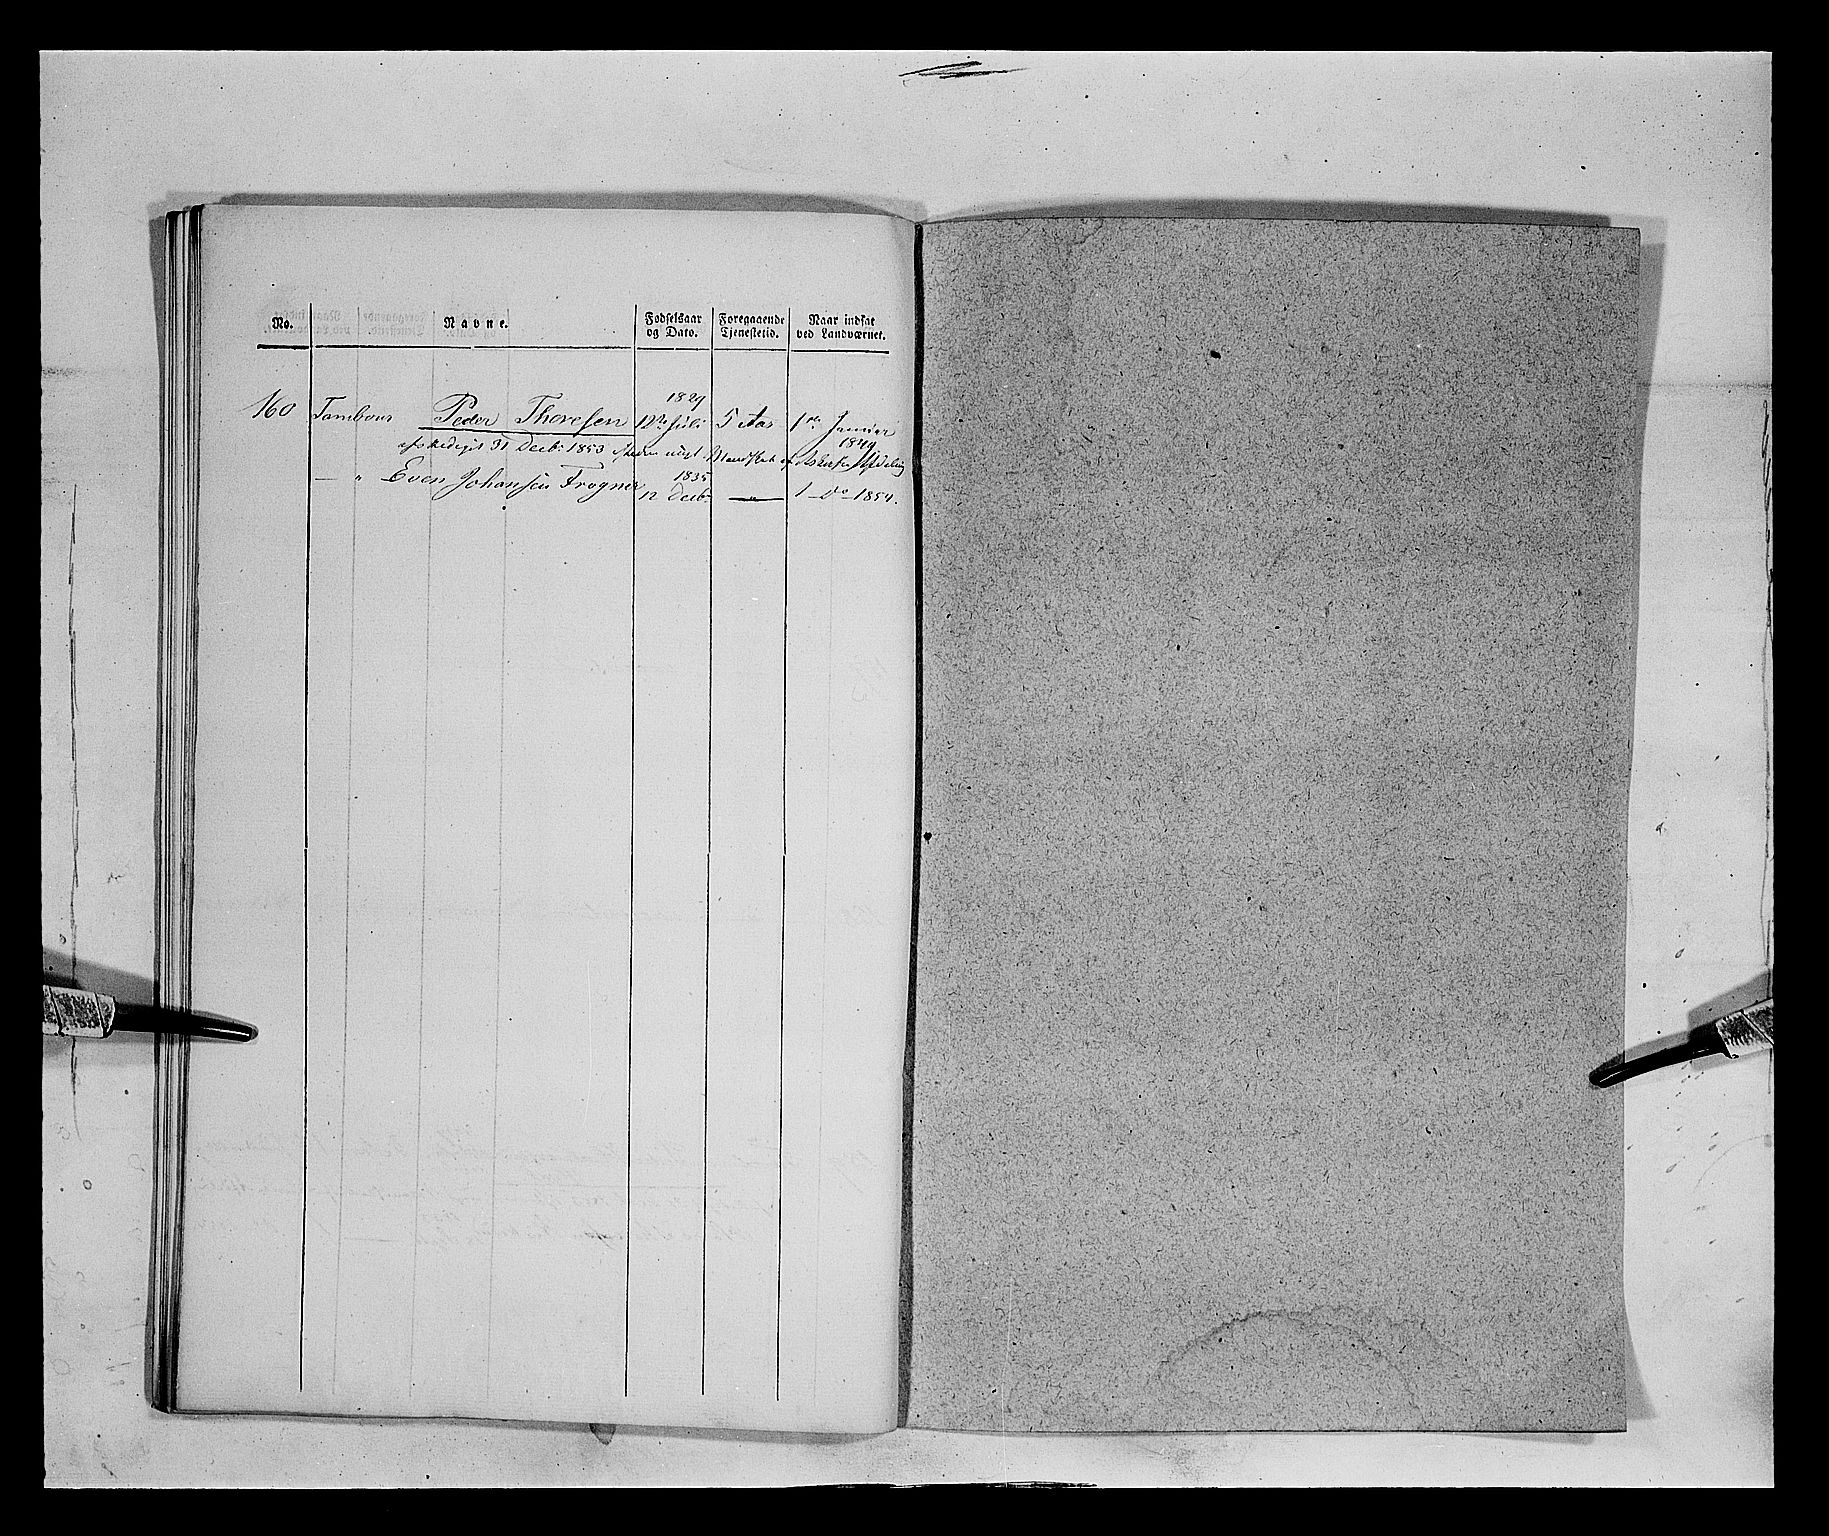 No. Navne. Fødselsaar og Dato. Foregaaende Tjenestetid. Naar indsat ved Landværnet.
1829
160 Tambour Peder Thoresen 12te Juli 5 Aar 1ste Januar
1849
afskediget 31 Decbr 1853 Mandskab Afdeling
1835
— " Even Johansen Frogner 12 Decbr — " — 1 do 1854.